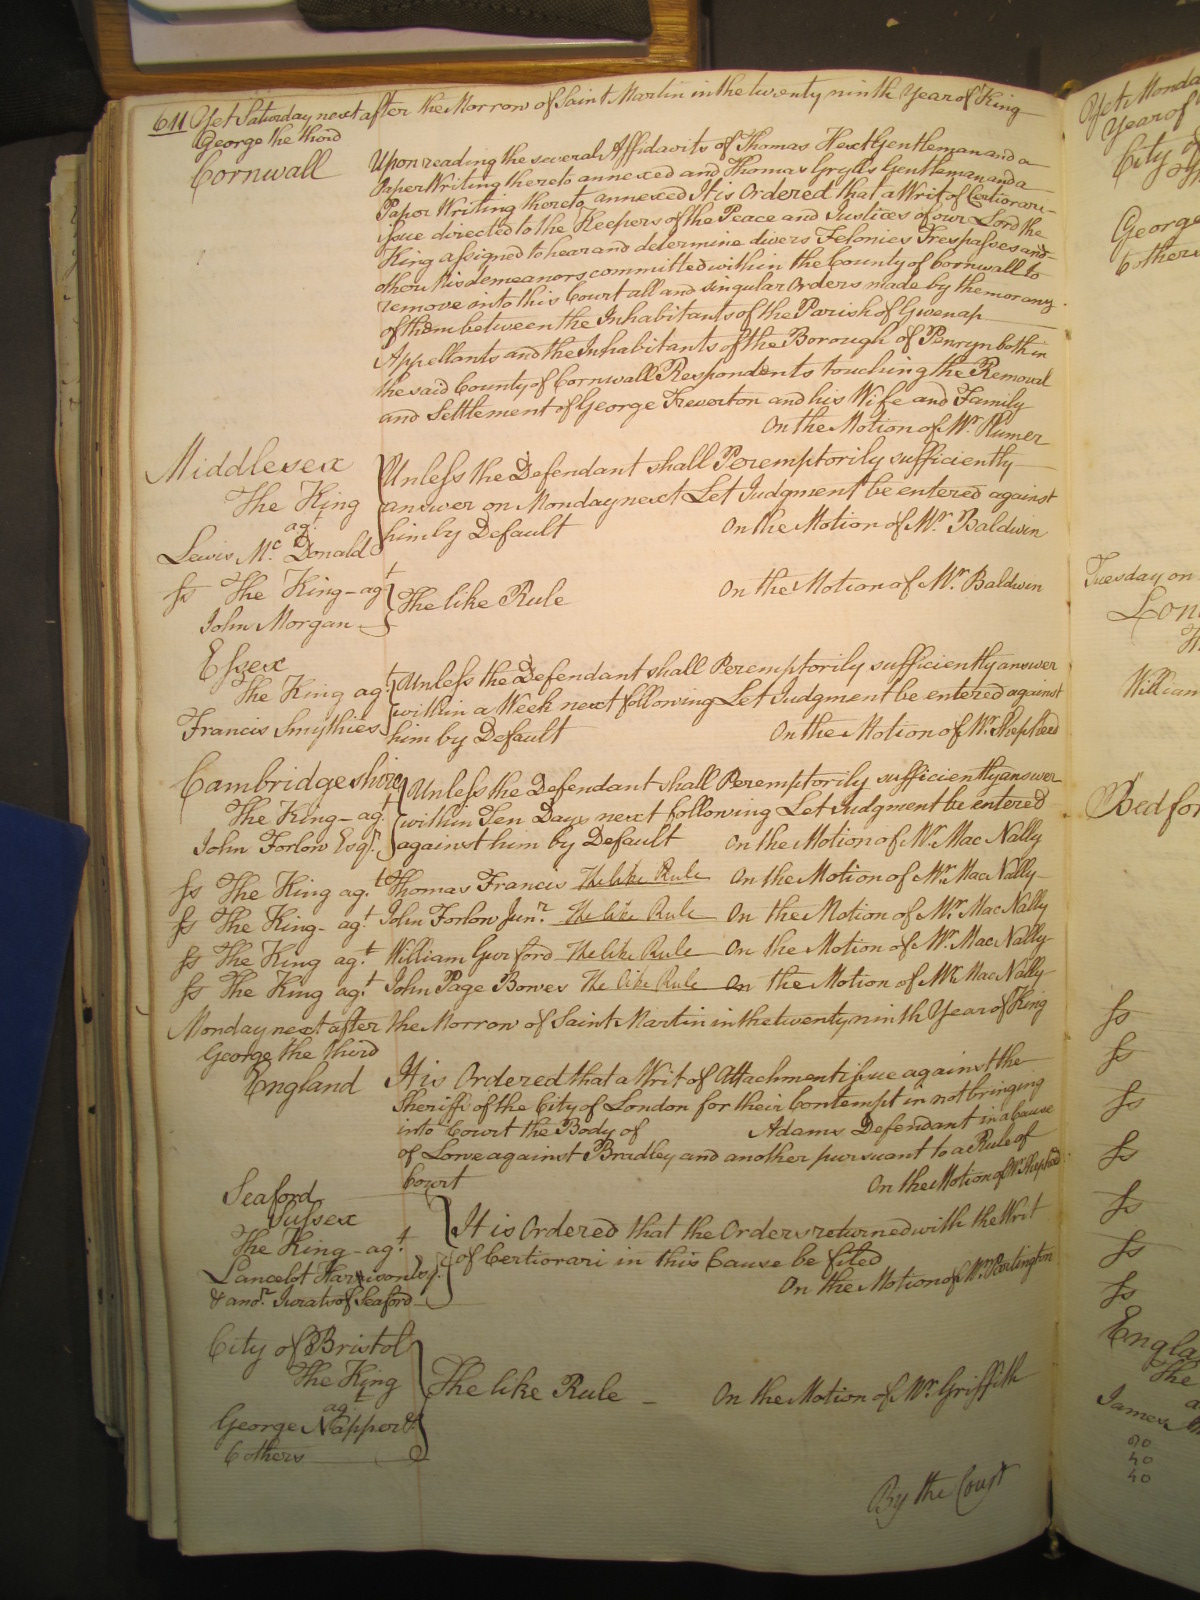 611 Yet Saturday next after the Morrow of Saint Martin in the twenty ninth Year of King
George the third
Cornwall
Upon reading the several Affidavits of Thomas Hext Gentleman and a
Paper Writing thereto annexed and Thomas Grylls Gentleman and a
Paper Writing thereto annexed It is Ordered that a Writ of Certiorari
issue directed to the Keepers of the Peace and Justices of our Lord the
King assigned to hear and determine divers Felonies Trespasses and
other Misdemeanors committed within the County of Cornwall to
remove into this Court all and singular Orders made by them or any
of them between the Inhabitants of the Parish of Gwenap
Appellants and the Inhabitants of the Borough of Penryn both in
the said County of Cornwall Respondents touching the Removal
and Settlement of George Treverton and his Wife and Family
On the Motion of Mr. Plumer
Middlesex
The King
agt
Lewis Mc Donald
Unless the Defendant shall Peremptorily sufficiently
answer on Monday next Let Judgment be entered against
him by Default On the Motion of Mr. Baldwin
ss The King - agt
John Morgan
The like Rule On the Motion of Mr. Baldwin
Essex
The King agt
Francis Smythies
Unless the Defendant shall Peremptorily sufficiently answer
within a Week next following Let Judgment be entered against
him by Default On the Motion of Mr. Shepherd
Cambridgeshire
The King - agt
John Forlow Esqr.
Unless the Defendant shall Peremptorily sufficiently answer
within Ten Days next following Let Judgment be entered
against him by Default On the Motion of Mr. Mac Nally
ss The King agt. Thomas Francis The like Rule On the Motion of Mr. Mac Nally
ss The King - agt John Forlow Junr. The like Rule On the Motion of Mr. Mac Nally
ss The King agt. William Gurford The like Rule On the Motion of Mr. Mac Nally
ss The King agt. John Page Bowes The like Rule On the Motion of Mr. Mac Nally
Monday next after the Morrow of Saint Martin in the twenty ninth Year of King
George the third
England
It is Ordered that a Writ of Attachment issue against the
Sheriff of the City of London for their Contempt in not bringing
into Court the Body of Adams Defendant in a Cause
of Lowe against Bradley and another pursuant to a Rule of
Court On the Motion of Mr. Shepherd
Seaford
Sussex
The King - agt.
Lancelot Harrison Esqr.
& anor. Jurats of Seaford
It is Ordered that the Orders returned with the Writ
of Certiorari in this Cause be filed
On the Motion of Mr. Partington
City of Bristol
The King
agt
George Napper &
6 others
The like Rule - On the Motion of Mr. Griffith
By the Court
Yet Monda
Year of
City of
George
6 others
Tuesday on
Lon
Th
William
Bedfor
ss
ss
ss
ss
ss
ss
ss
Engla
The
a
James
40
40